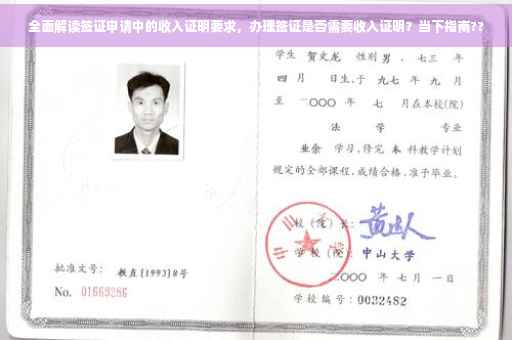 全面解读签证申请中的收入证明要求，办理签证是否需要收入证明？当下指南??
学生 贺文龙 性别 男 ，七三 年
四 月 日生，于 九七 年 九 月
至 二〇〇〇 年 七 月在本校(院)
法 学 专业
业余 学习，修完 本 科教学计划
规定的全部课程，成绩合格，准予毕业。
校（院）长：
学 校（院）：中山大学
二〇〇〇 年 七 月 一 日
学校编号：0032482
批准文号： 教直[1993]8号
No. 01669286